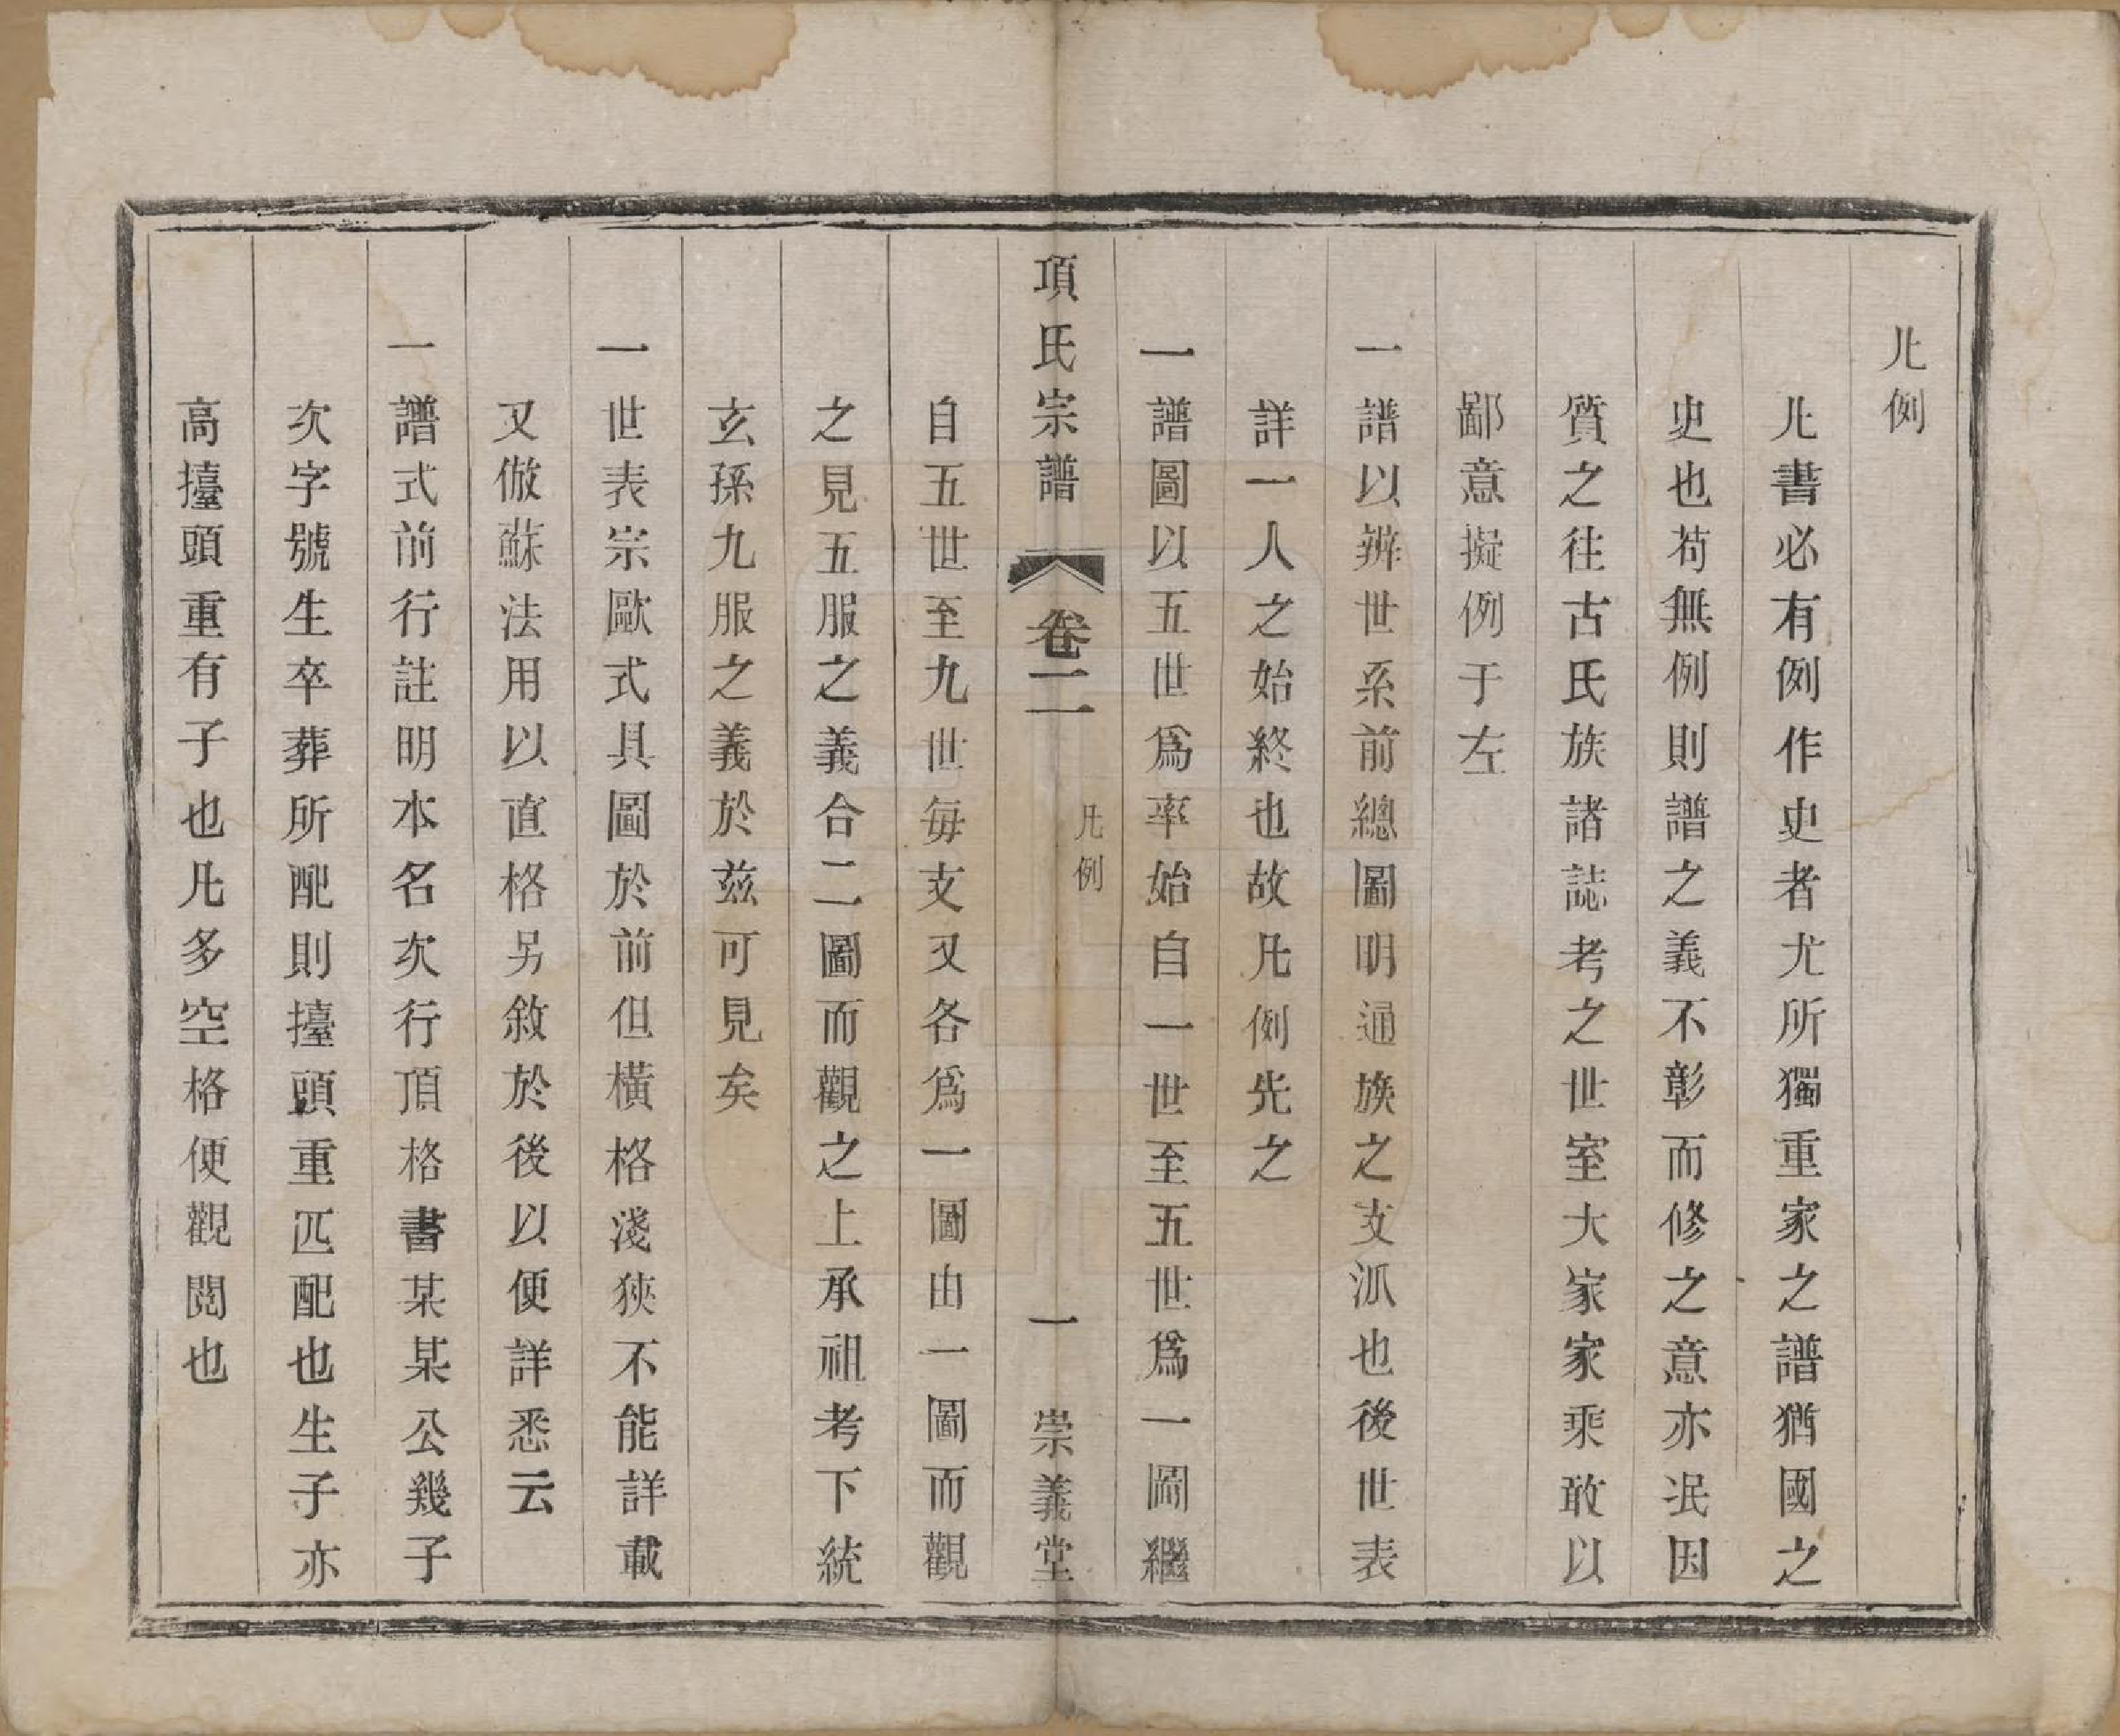 凡例
凡書必有例作史者尤所獨重家之譜猶國之
史也苟無例則譜之義不彰而修之意亦泯因
質之往古氏族諸誌考之世室大家家乘敢以
鄙意擬例于左
一譜以辨世系前總圖明通族之支派也後世表
詳一人之始終也故凡例先之
一譜圖以五世爲率始自一世至五世爲一圖繼
項氏宗譜 卷二 凡例 一 崇義堂
自五世至九世每支又各爲一圖由一圖而觀
之見五服之義合二圖而觀之上承祖考下統
玄孫九服之義於兹可見矣
一世表宗歐式具圖於前但橫格淺狹不能詳載
又倣蘇法用以直格另敘於後以便詳悉云
一譜式前行註明本名次行頂格書某某公幾子
次字號生卒葬所配則擡頭重匹配也生子亦
高擡頭重有子也凡多空格便觀閱也